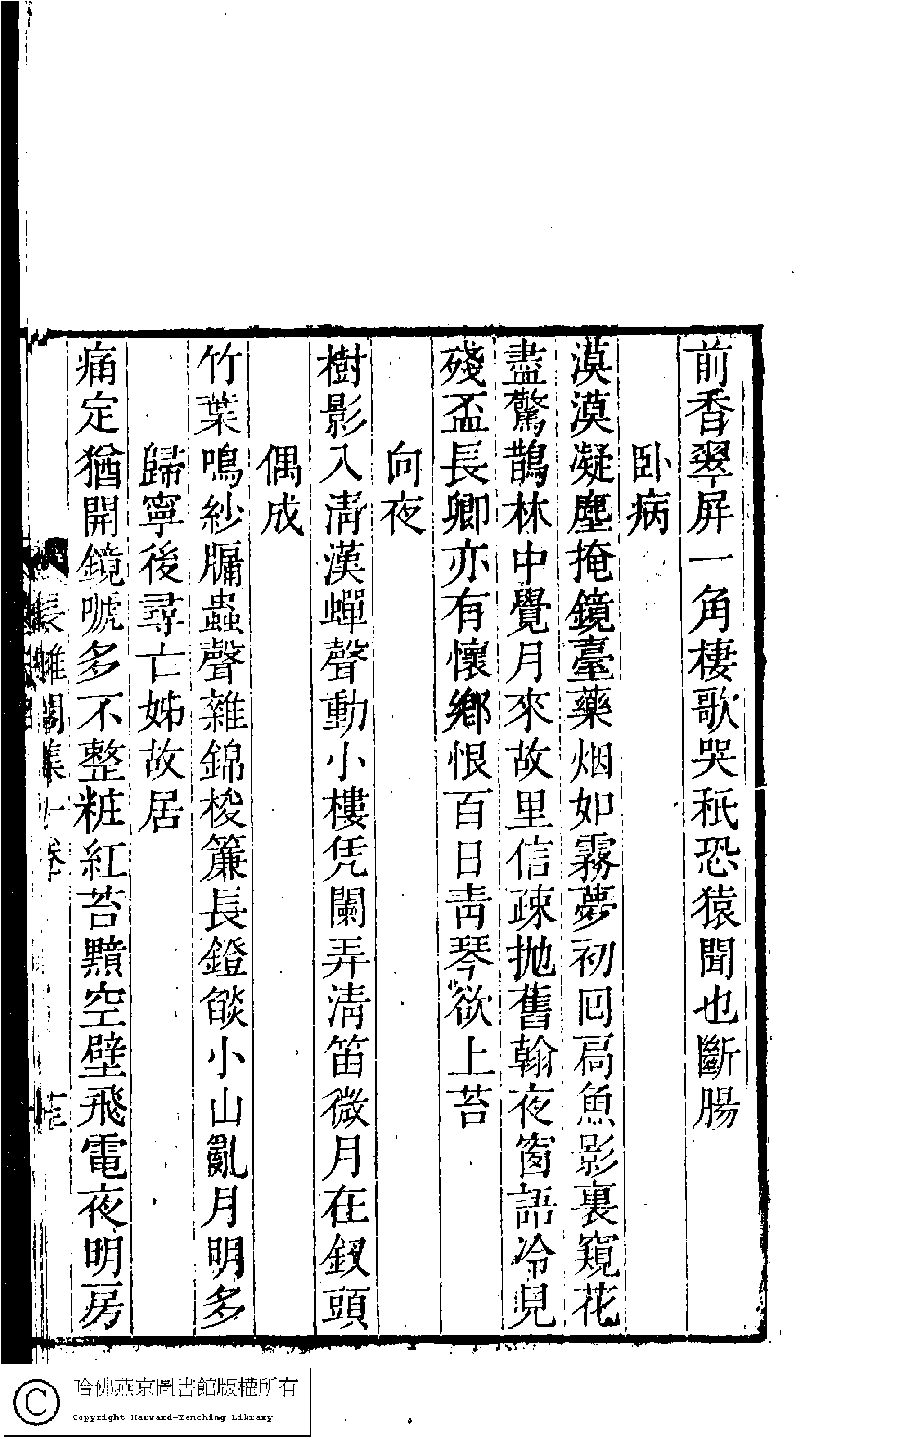 前香翠屏一角棲歌哭秖恐猿聞也斷腸
卧病
漠漠凝塵掩鏡臺藥烟如霧夢初囘扃魚影裏窺花
盡驚鵲林中覺月來故里信疎抛舊翰夜窗語冷見
殘盃長卿亦有懷鄉恨百日靑琴欲上苔
向夜
樹影入淸漢蟬聲動小樓凭闌弄淸笛微月在釵頭
偶成
竹葉鳴紗牖蟲聲雜錦梭簾長鐙燄小山亂月明多
歸寧後尋亡姊故居
痛定猶開鏡嗁多不整粧紅苔黯空壁飛電夜明房
長離閣集
卷
哈佛燕京圖書館版權所有
Copyright Harvard-Yenching Library